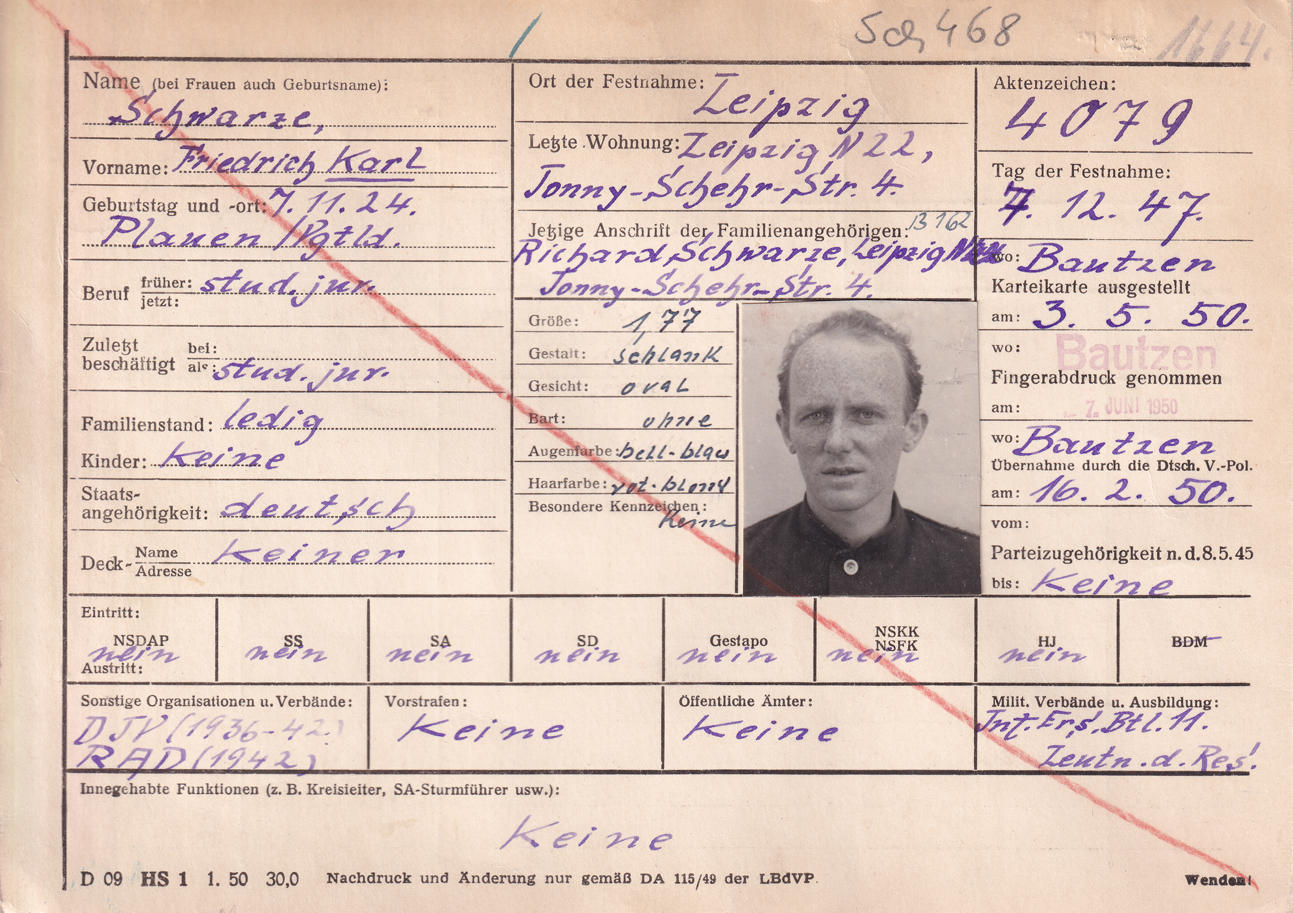 Sch 468
1664.
Name (bei Frauen auch Geburtsname):
Schwarze,
Vorname: Friedrich Karl
Geburtstag und -ort: 7.11.24.
Plauen /Vgtld.
Beruf früher: stud. jur.
jetzt:
Zuletzt beschäftigt bei:
als: stud. jur.
Familienstand: ledig
Kinder: Keine
Staats-
angehörigkeit: deutsch
Deck- Name
Adresse Keiner
Ort der Festnahme: Leipzig
Letzte Wohnung: Leipzig N 22,
Jonny-Schehr-Str. 4.
Jetzige Anschrift der Familienangehörigen: B 162
Richard Schwarze, Leipzig N 22
Jonny-Schehr-Str. 4.
Größe: 1,77
Gestalt: schlank
Gesicht: oval
Bart: ohne
Augenfarbe: hell-blau
Haarfarbe: rot-blond
Besondere Kennzeichen:
Keine
Aktenzeichen:
4079
Tag der Festnahme:
7. 12. 47.
wo: Bautzen
Karteikarte ausgestellt
am: 3. 5. 50.
wo: Bautzen
Fingerabdruck genommen
am: - 7. JUNI 1950
wo: Bautzen
Übernahme durch die Dtsch. V.-Pol.
am: 16. 2. 50.
vom:
Parteizugehörigkeit n. d. 8.5.45
bis: Keine
Eintritt:
NSDAP SS SA SD Gestapo NSKK NSFK HJ BDM
nein nein nein nein nein nein nein
Austritt:
Sonstige Organisationen u. Verbände:
DJV (1936-42)
RAD (1942)
Vorstrafen:
Keine
Öffentliche Ämter:
Keine
Milit. Verbände u. Ausbildung:
Inf. Ers. Btl. 11.
Leutn. d. Res.
Innegehabte Funktionen (z. B. Kreisleiter, SA-Sturmführer usw.):
Keine
D 09 HS 1 1. 50 30,0 Nachdruck und Änderung nur gemäß DA 115/49 der LBdVP.
Wenden!